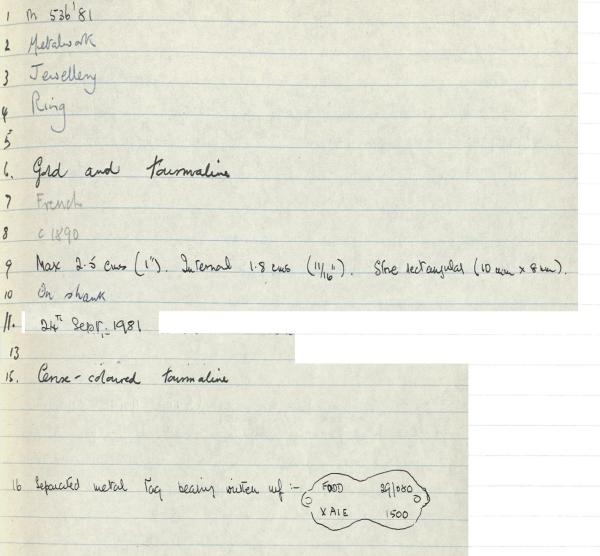 1 M 536'81
2 Metalwork
3 Jewellery
4 Ring
5
6. Gold and tourmaline
7 French
8 c 1890
9 Max 2.5 cms (1"). Internal 1.8 cms (11/16"). Stone rectangular (10 mm x 8 mm).
10 On shank
11. 24th Sept. 1981
13
15. Cerise-coloured tourmaline
16 Separated metal tag bearing written inf :-
FODD 29/080
XAIE 1500